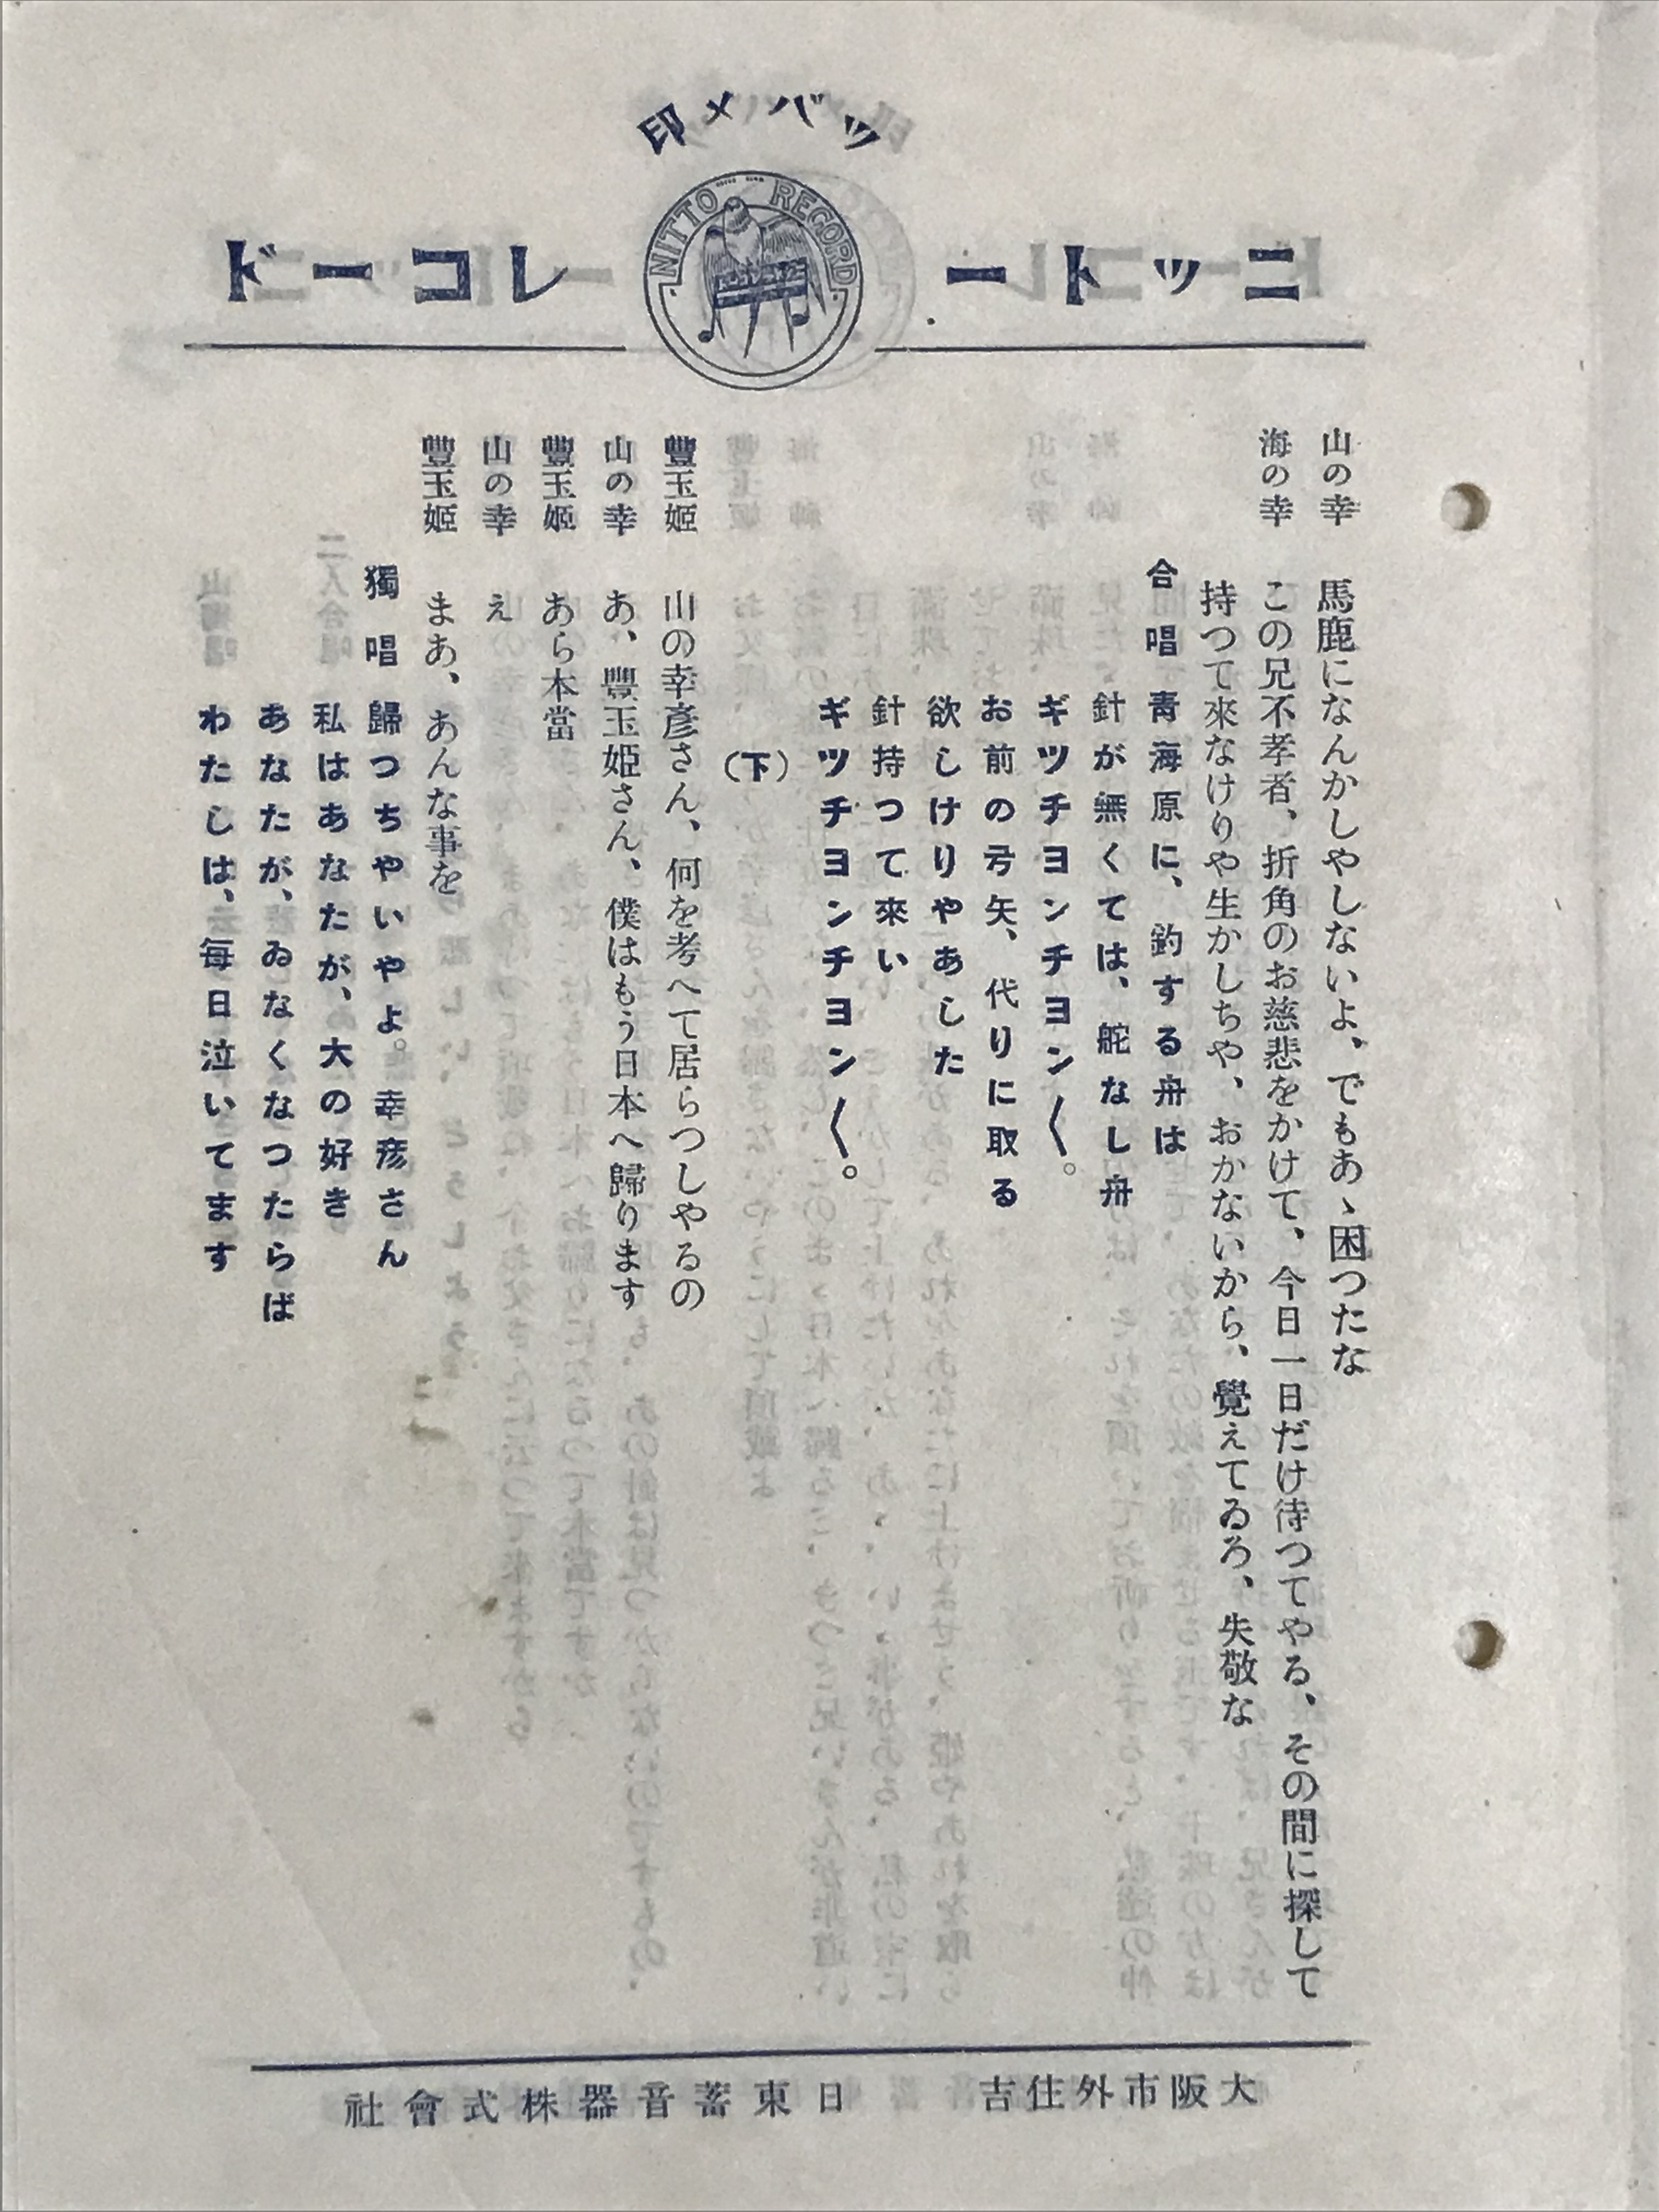 ツバメ印
ニットーレコード
NITTO RECORD
山の幸　馬鹿になんかしやしないよ、でもあゝ困つたな
海の幸　この兄不孝者、折角のお慈悲をかけて、今日一日だけ待つてやる、その間に探して
持つて來なけりや生かしちや、おかないから、覺えてゐろ、失敬な
合唱　青海原に、釣する舟は
針が無くては、舵なし舟
ギツチヨンチヨン〱。
お前の弓矢、代りに取る
欲しけりやあした
針持つて來い
ギツチヨンチヨン〱。
（下）
豐玉姫　山の幸彥さん、何を考へて居らつしやるの
山の幸　あ、豐玉姫さん、僕はもう日本へ歸ります
豐玉姫　あら本當
山の幸　え
豐玉姫　まあ、あんな事を
獨唱　歸つちやいやよ。幸彥さん
私はあなたが、大の好き
あなたが、ゐなくなつたらば
わたしは、毎日泣いてます
大阪市外住吉　日東蓄音器株式會社